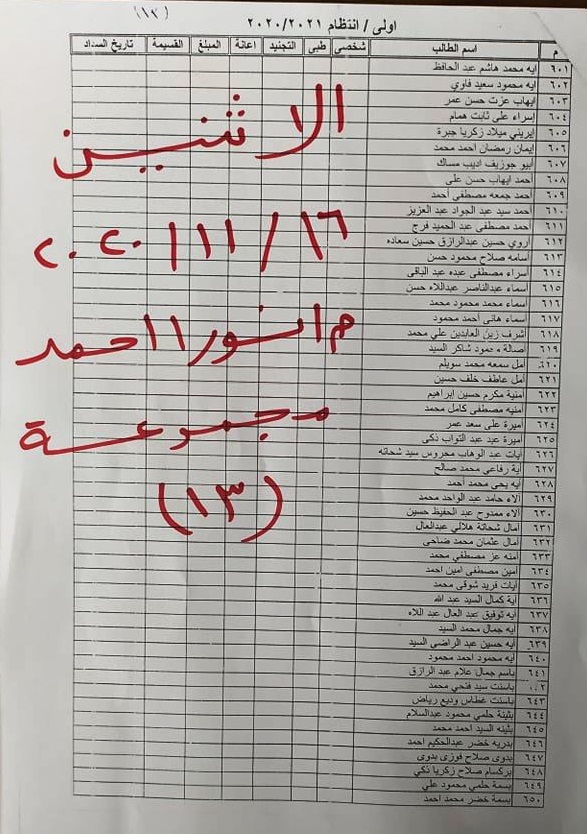 (١٣)
اولى / انتظام ٢٠٢٠/٢٠٢١
م اسم الطالب شخصى طبى التجنيد اعانة المبلغ القسيمة تاريخ السداد
٦٠١ ايه محمد هاشم عبد الحافظ
٦٠٢ ايه محمود سعيد فاوي
٦٠٣ ايهاب عزت حسن عمر
٦٠٤ إسراء على ثابت همام
٦٠٥ إيريني ميلاد زكريا جبرة
٦٠٦ إيمان رمضان احمد محمد
٦٠٧ أبيو جوزيف اديب مساك
٦٠٨ أحمد ايهاب حسن على
٦٠٩ أحمد جمعه مصطفى أحمد
٦١٠ أحمد سيد عبد الجواد عبد العزيز
٦١١ أحمد مصطفى عبد الحميد فرج
٦١٢ أروي حسين عبدالرازق حسين سعاده
٦١٣ أسامه صلاح محمود حسن
٦١٤ أسراء مصطفى عبده عبد الباقى
٦١٥ أسماء عبدالناصر عبداللاه حسن
٦١٦ أسماء محمد محمود محمد
٦١٧ أسماء هانى أحمد محمود
٦١٨ أشرف زين العابدين علي محمد
٦١٩ أصالة محمود شاكر السيد
أمل سمعه محمد سويلم
٦٢١ أمل عاطف خلف حسين
٦٢٢ أمنية مكرم حسين ابراهيم
٦٢٣ أمنيه مصطفى كامل محمد
٦٢٤ أميرة على سعد عمر
٦٢٥ أميرة عيد عبد التواب ذكى
٦٢٦ أيات عبد الوهاب محروس سيد شحاته
٦٢٧ أية رفاعي محمد صالح
٦٢٨ أيه يحى محمد أحمد
٦٢٩ ألاء حامد عبد الواحد محمد
٦٣٠ ألاء ممدوح عبد الحفيظ حسين
٦٣١ أمال شحاتة هلالي عبدالعال
٦٣٢ أمال عثمان محمد ضاحى
٦٣٣ أمنه عز مصطفي محمد
٦٣٤ أمين مصطفى امين احمد
٦٣٥ أيات فريد شوقى محمد
٦٣٦ أية كمال السيد عبد الله
٦٣٧ أيه توفيق عبد العال عبد اللاه
٦٣٨ أيه جمال محمد السيد
٦٣٩ أيه حسين عبد الراضى السيد
٦٤٠ أيه محمود احمد محمود
٦٤١ باسم جمال علام عبد الرازق
باسنت سيد فتحي محمد
٦٤٣ باسنت غطاس وديع رياض
٦٤٤ بثينة حلمي محمود عبدالسلام
٦٤٥ بثينه السيد احمد محمد
٦٤٦ بدريه خضر عبدالحكيم احمد
٦٤٧ بدوى صلاح فوزى بدوى
٦٤٨ بركسام صلاح زكريا ذكي
٦٤٩ بسمة حلمي محمود علي
٦٥٠ بسمة خضر محمد احمد
الاثنين
١٦ / ١١ / ٢٠٢٠
م انورا احمد
مجموعة
(١٣)